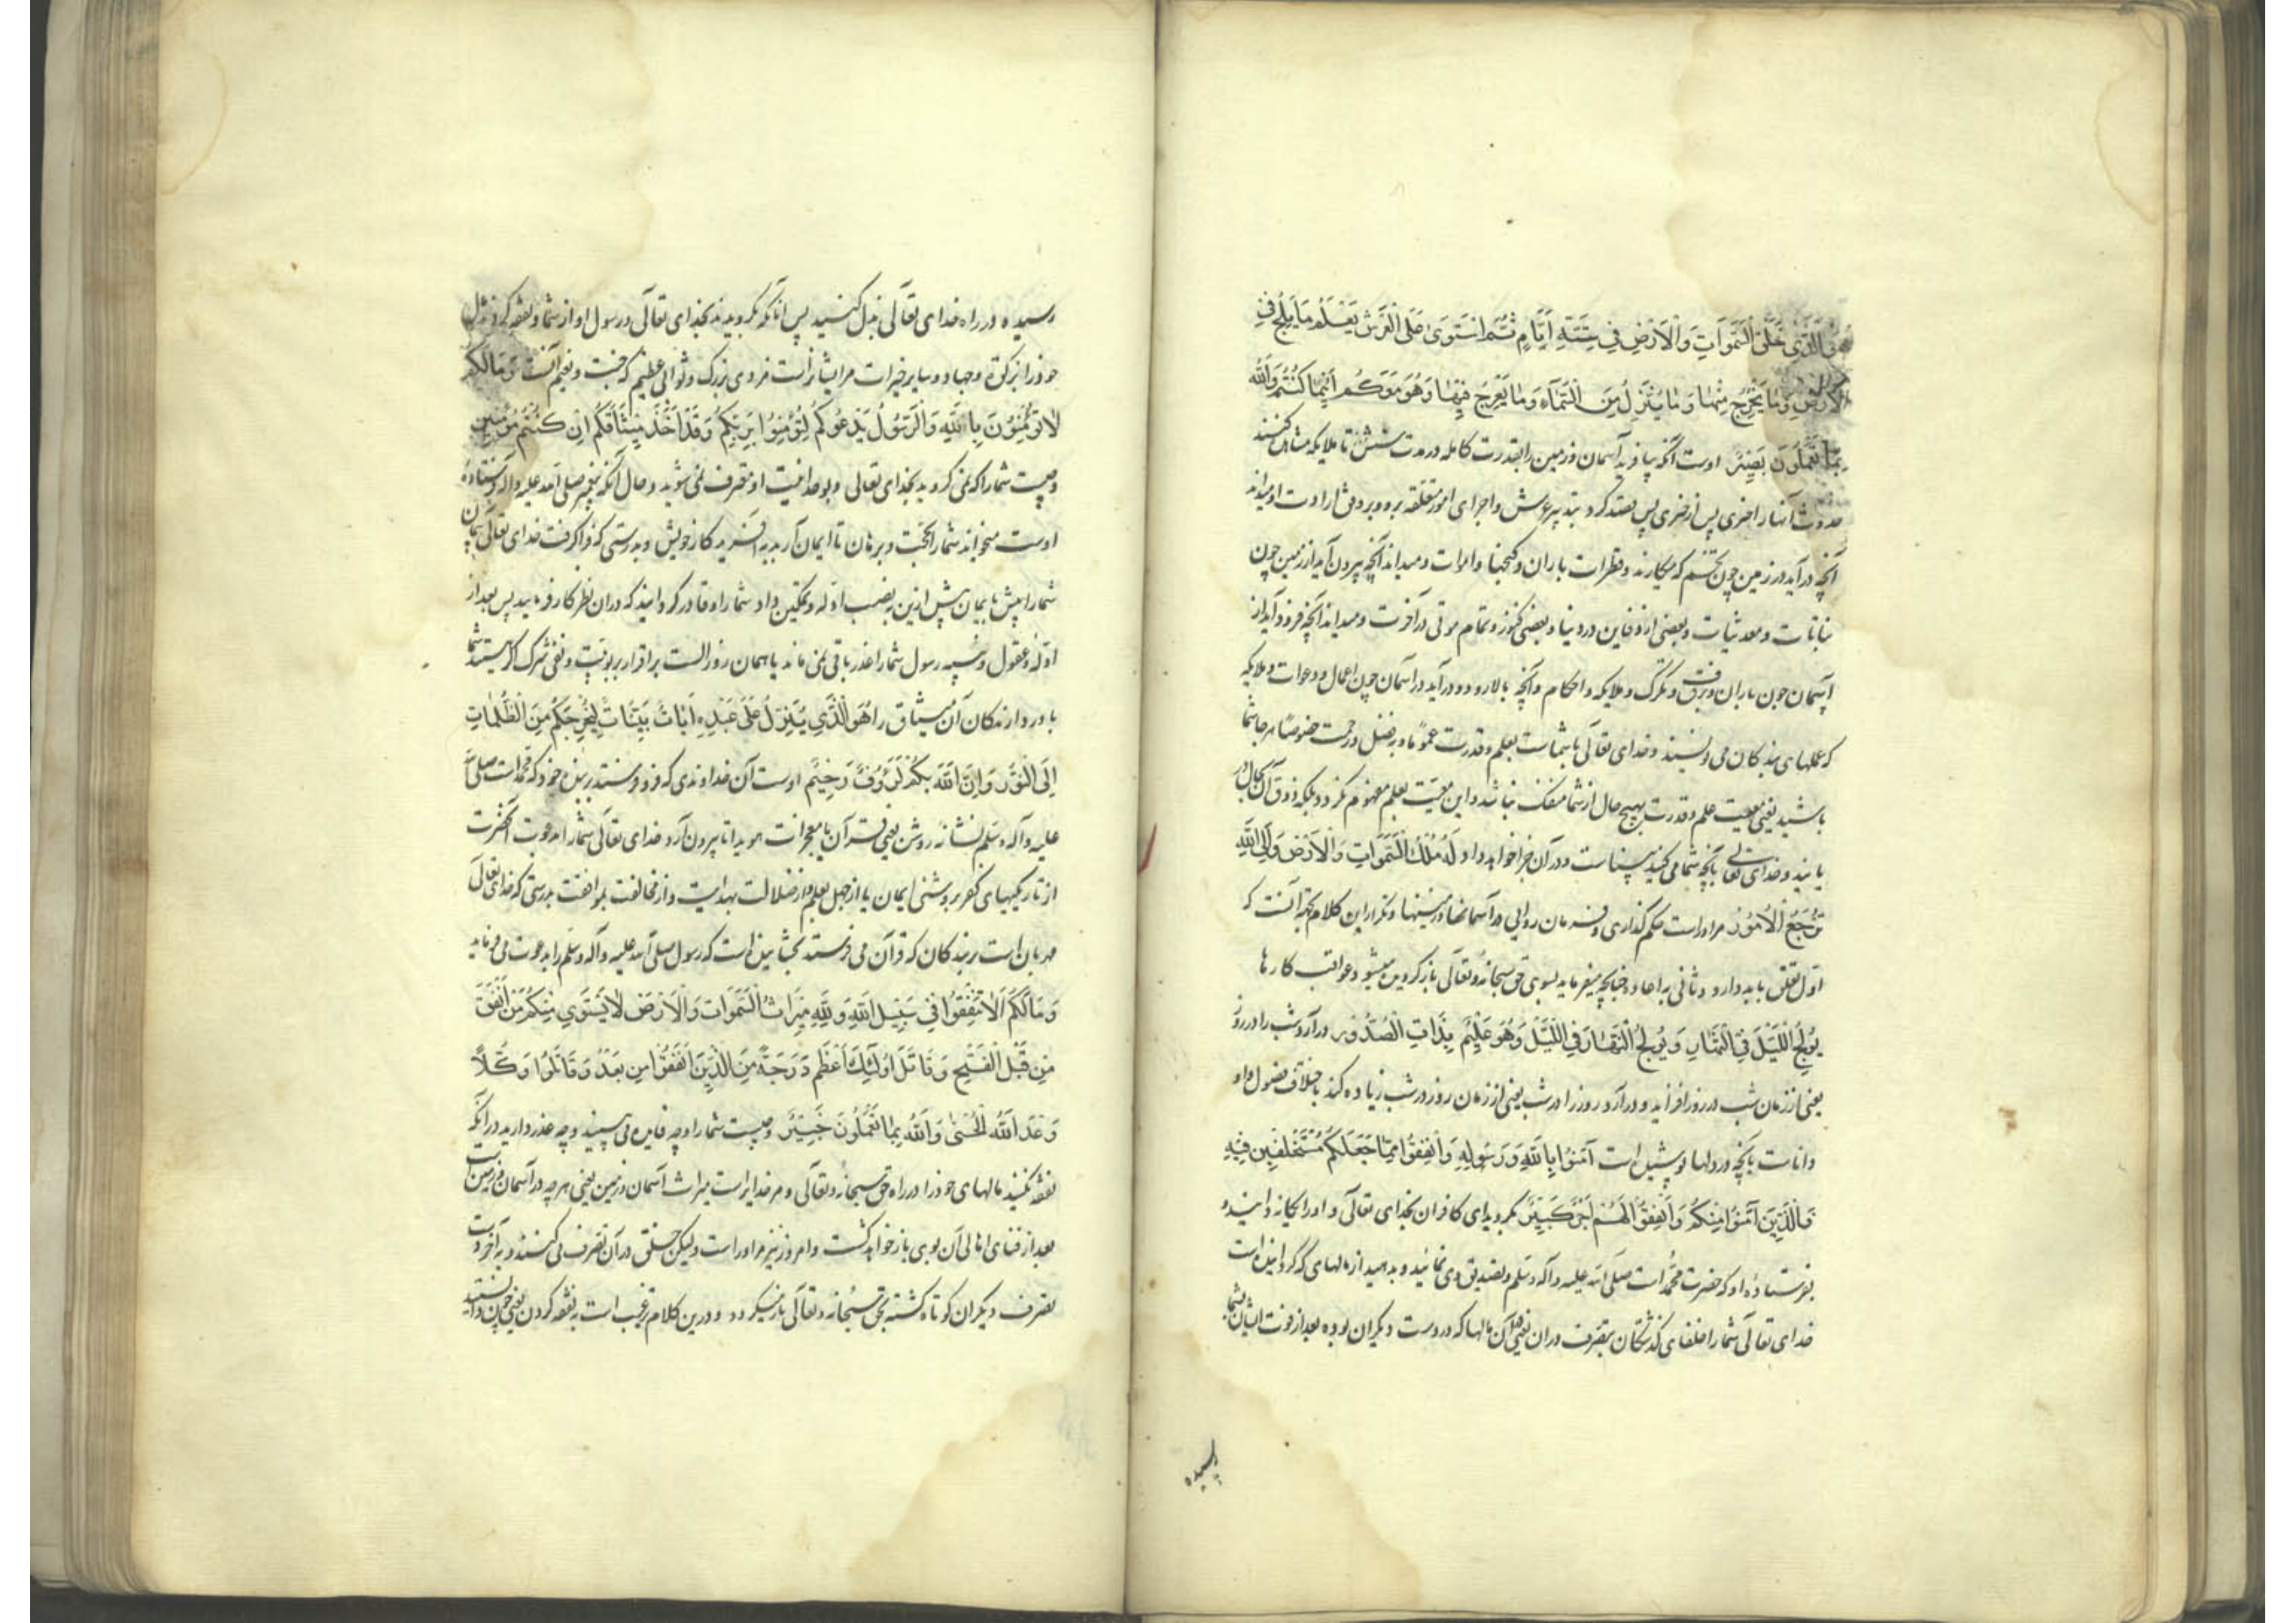 هُوَ الَّذِی خَلَقَ السَّمَوَاتِ وَالْاَرْضَ فِی سِتَّةِ اَیَّامٍ ثُمَّ اسْتَوَیٰ عَلَی الْعَرْشِ یَعْلَمُ مَا یَلِجُ فِی
الْاَرْضِ وَمَا یَخْرُجُ مِنْهَا وَمَا یَنْزِلُ مِنَ السَّمَآءِ وَمَا یَعْرُجُ فِیهَا وَهُوَ مَعَکُم اَیْنَمَا کُنْتُمْ وَاللهُ
بِمَا تَعْمَلُونَ بَصِیرٌ اوست آنکه بیافرید آسمان و زمین را بقدرت کامله در مدت شش تا ملایکه مشاهده کنند
حدوث آنها را چیزی پس از چیزی پس قصد کرد بتدبیر عرش و اجرای امور متعلقه برو و بر وفق ارادت او میداند
آنچه درآید در زمین چون تخم که میکارند و قطرات باران و گنجها و اموات و میداند آنچه بیرون آید از زمین چون
نباتات و معدنیات و بعضی از دفاین در دنیا و بعضی کنوز و تمام موتی در آخرت و میداند آنچه فرود آید از
آسمان چون باران و برف و تگرگ و ملایکه و احکام و آنچه بالا رود و درآید در آسمان چون اعمال و دعوات و ملایکه
که عملهای بندکان می نویسند و خدای تعالی با شماست بعلم و قدرت عموما و بفضل و رحمت خصوصا هر جا شما
باشید یعنی معیت علم و قدرت بهیچ حال از شما منفک نباشد و این معیت بعلم مفهوم نگردد بلکه ذوق آن کمال در
یابند و خدای تعالی بآنچه شما می کنید بیناست و در آن جزا خواهد داد لَهُ مُلْكُ السَّمَوَاتِ وَالْاَرْضِ وَاِلَی اللهِ
تُرْجَعُ الْاُمُوْرُ مر اوراست حکم گذاری و فرمان روایی در آسمانها و زمینها و تکرار این کلام بجهة آنست که
اول تعلق بابدا دارد و ثانی به اعاده چنانچه میفرماید بسوی حق سبحانه و تعالی بازگردیده میشود عواقب کارها
یُولِجُ اللَّیْلَ فِی النَّهَارِ وَیُولِجُ النَّهَارَ فِی اللَّیْلِ وَهُوَ عَلِیْمٌ بِذَاتِ الصُّدُوْرِ درآرد شب را در روز
یعنی از زمان شب در روز افزاید و درآرد روز را در شب یعنی از زمان روز در شب زیاده کند باختلاف فصول و او
داناست بآنچه در دلها پوشیده است آمَنُوا بِاللهِ وَرَسُولِهِ وَاَنْفِقُوا مِمَّا جَعَلَکُمْ مُسْتَخْلَفِینَ فِیْهِ
فَالَّذِینَ آمَنُوا مِنْکُمْ وَاَنْفَقُوا لَهُمْ اَجْرٌ کَبِیْرٌ بگروید ای کافران بخدای تعالی و او را یگانه دانید و
بفرستاده او که حضرت محمد است صلی الله علیه و آله وسلم و تصدیق وی نمائید و بدهید از مالهای که گردانیده است
خدای تعالی شما را خلفای گذشتگان بتصرف در آن یعنی آن مالها که در دست دیگران بوده بعد از فوت ایشان بشما
رسیده
رسیده و در راه خدای تعالی بذل کنید پس آنانکه بگرویدند بخدای تعالی و رسول او از شما و نفقه کردند مال
خود را از زکوة و جهاد و سایر خیرات مر ایشانراست مزدی بزرک و ثوابی عظیم که جنت و نعیم آنست وَمَالَکُمْ
لَاتُؤْمِنُونَ بِاللهِ وَالرَّسُوْلُ یَدْعُوکُمْ لِتُؤْمِنُوا بِرَبِّکُمْ وَقَدْ اَخَذَ مِیْثَاقَکُمْ اِنْ کُنْتُمْ مُؤْمِنِین
و چیست شما را که نمی گروید بخدای تعالی و بوحدانیت او معترف نمی شوید و حال آنکه پیغمبر صلی الله علیه و آله فرستاده
اوست میخواند شما را بحجت و برهان تا ایمان آرید به آفریدکار خویش و بدرستی که فرا گرفت خدای تعالی پیمان
شما را پیش بایمان پیش ازین بنصب ادله و تمکین داد شما را و قادر گردانید که در آن نظر کار فرمایید پس بعد از
ادله و عقول و تنبیه رسول شما را عذر باقی نمی ماند یا همان روز الست بر اقرار بربوبیت و نفی شرک اگر هستید شما
باور دارندکان آن میثاق را هُوَ الَّذِی یُنَزِّلُ عَلَی عَبْدِهِ اٰیَاتٍ بَیِّنَاتٍ لِیُخْرِجَکُمْ مِنَ الظُّلُمَاتِ
اِلَی النُّوْرِ وَاِنَّ اللهَ بِکُمْ لَرَؤُفٌ رَحِیْمٌ اوست آن خداوندی که فرو فرستد بر بنده خود که محمد است صلی الله
علیه و آله وسلم نشانه روشن یعنی قرآن یا معجزات هویدا تا بیرون آرد خدای تعالی شما را بدعوت آنحضرت
از تاریکیهای کفر بروشنی ایمان یا از جهل بعلم و از ضلالت بهدایت و از مخالفت بموافقت بدرستی که خدای تعالی
مهربان است بر بندکان که قرآن می فرستد بخشاینده است که رسول صلی الله علیه و آله وسلم را بدعوت می فرماید
وَمَالَکُمْ اَلَّاتُنْفِقُوا فِی سَبِیْلِ اللهِ وَلِلّهِ مِیْرَاثُ السَّمَوَاتِ وَالْاَرْضِ لَایَسْتَوِی مِنْکُمْ مَنْ اَنْفَقَ
مِنْ قَبْلِ الْفَتْحِ وَقَاتَلَ اُولَئِكَ اَعْظَمُ دَرَجَةً مِنَ الَّذِیْنَ اَنْفَقُوْا مِن بَعْدُ وَقَاتَلُوا وَکُلًّا
وَعَدَ اللهُ الْحُسْنَی وَاللهُ بِمَا تَعْمَلُونَ خَبِیْرٌ و چیست شما را و چه فایده می بینید و چه عذر دارید در آنکه
نفقه نکنید مالهای خود را در راه حق سبحانه و تعالی و مر خدایراست میراث آسمان و زمین یعنی هرچه در آسمان و زمین است
بعد از فنای اهالی آن بوی باز خواهد گشت و امروز نیز مر اوراست ولیکن خلق در آن تصرف می کنند و به آخر دست
تصرف دیگران کوتاه گشته بحق سبحانه و تعالی باز میگردد و درین کلام ترغیب است به نفقه کردن یعنی چون دانستید